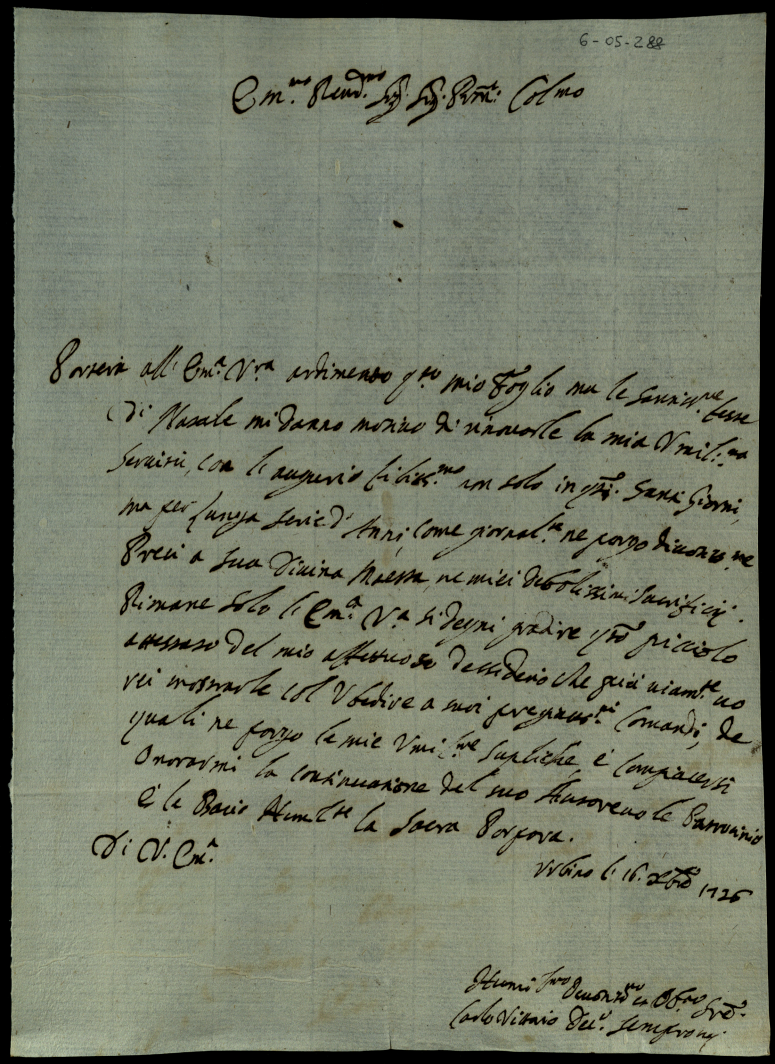 6-05-288
Em.mo Reud.mo Sig. Sig. Prōn. Colmo
Porterà all' Em.a V.ra ardimento q.sto mio Foglio ma le Santiss.me Feste
Di Natale mi danno motivo di rinovarle la mia Vmil.ma
Seruitù, con l'augurio felicis.mo non solo in q.sti Santi Giorni,
ma per lunga serie d'Anni, come giornal.te ne porgo diuotis.me
Preci a Sua Diuina Maestà, ne miei debolissimi Sacrificij.
Rimane solo l'Em.a V.a si degni gradire q.sto picciolo
attestato del mio affettuoso dessiderio che più uiam.te uo
rei mostrarle col Vbedire a suoi pregiatis.mi Comandi, de
quali ne porgo le mie Vmil.me Supliche, è compiacersi
Onorarmi la continuatione del suo Autoreuole Patrocinio
È le Bacio Humil.te la Sacra Porpora.
Di V. Em.a
Vrbino li 16. Xbre 1726
Humil.mo Deuotis.mo et Obl.mo Ser.
Carlo Vittorio Sempronij